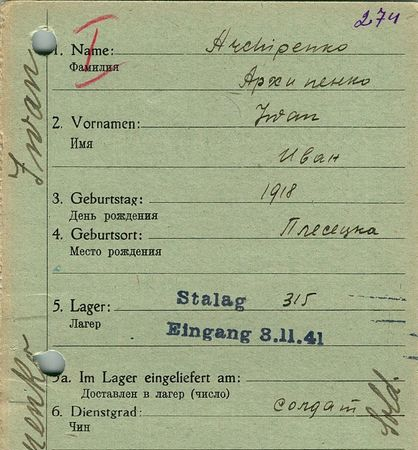 274
I
1. Name: Archipenko
Фамилия
Архипенко
2. Vornamen: Iwan
Имя
Иван
3. Geburtstag: 1918
День рождения
4. Geburtsort: Плесецка
Место рождения
5. Lager: Stalag 315
Лагер
Eingang 8.11.41
5a. Im Lager eingeliefert am:
Доставлен в лагер (число)
6. Dienstgrad: солдат
Чин
Sold.
Iwan